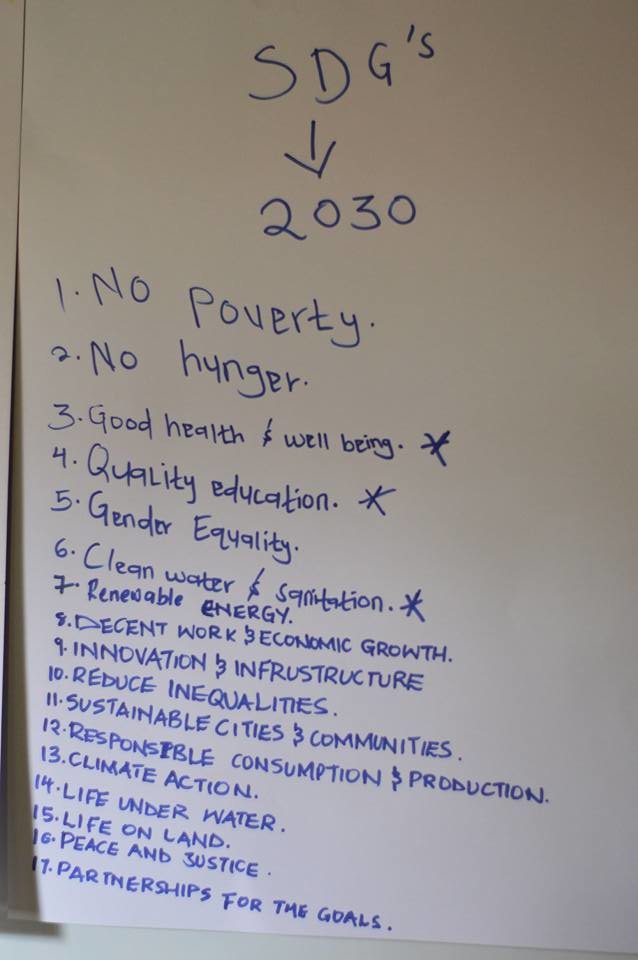 SDG's
↓
2030
1. No Poverty.
2. No hunger.
3. Good health & well being. *
4. Quality education. *
5. Gender Equality.
6. Clean water & sanitation. *
7. Renewable ENERGY.
8. DECENT WORK & ECONOMIC GROWTH.
9. INNOVATION & INFRUSTRUCTURE
10. REDUCE INEQUALITIES.
11. SUSTAINABLE CITIES & COMMUNITIES.
12. RESPONSIBLE CONSUMPTION & PRODUCTION.
13. CLIMATE ACTION.
14. LIFE UNDER WATER.
15. LIFE ON LAND.
16. PEACE AND JUSTICE.
17. PARTNERSHIPS FOR THE GOALS.